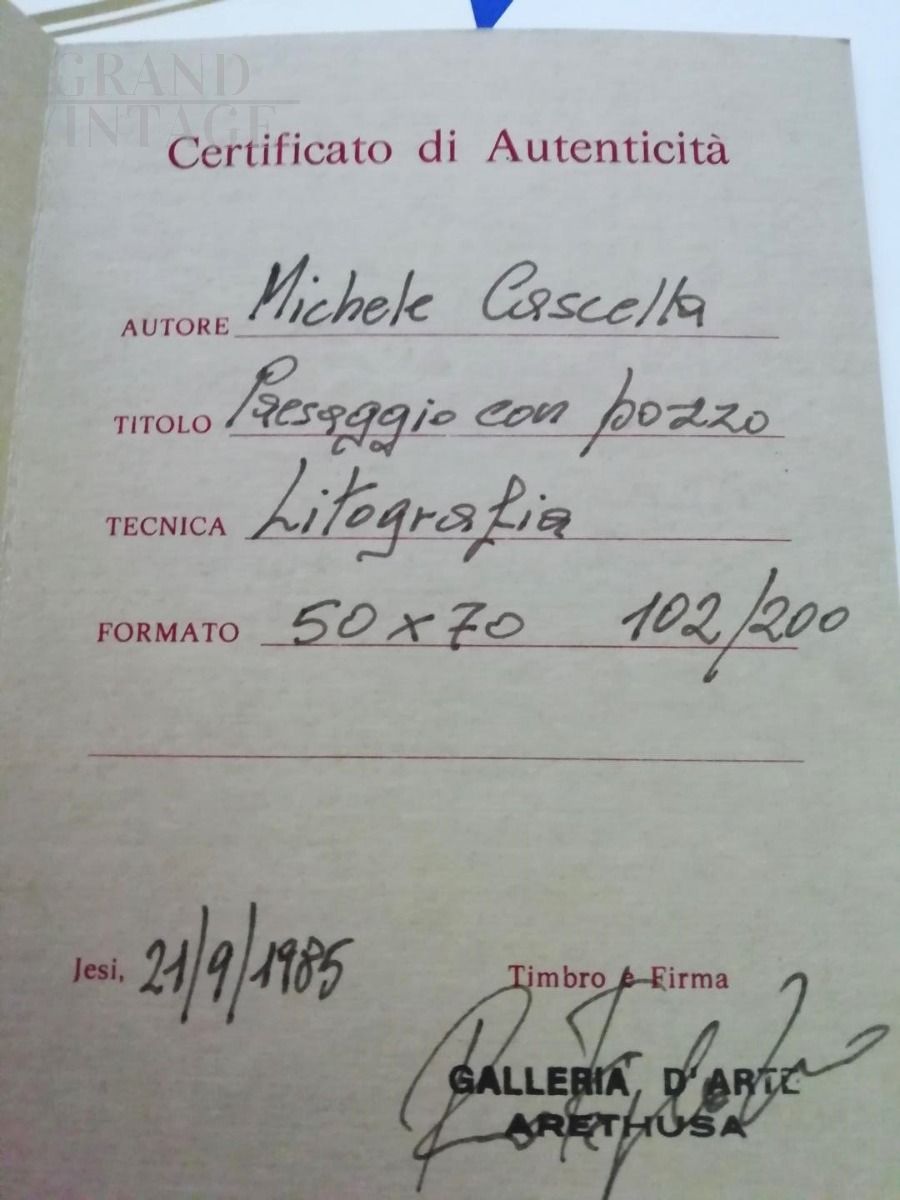 GRAND
VINTAGE
Certificato di Autenticità
AUTORE Michele Cascella
TITOLO Paesaggio con pozzo
TECNICA Litografia
FORMATO 50x70 102/200
Jesi, 21/9/1985
Timbro e Firma
GALLERIA D'ARTE
ARETHUSA